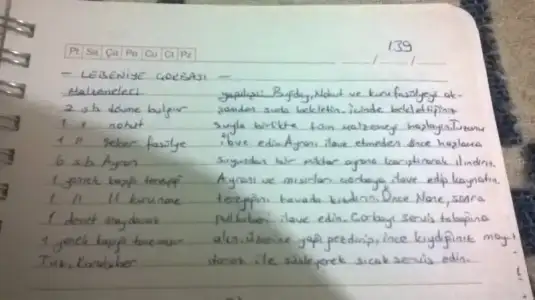 139
Pt Sa Ça Pe Cu Ct Pz
— LEBENİYE ÇORBASI —
Malzemeleri
2 s.b döume bulgur
1 " nohut
1 " şeker fasülye
6 s.b Ayran
1 yemek kaşığı tereyağı
1 " " kuru nane
1 demet maydanoz
1 yemek kaşığı
Tuz, Karabiber
yapılışı: Buğday, Nohut ve kuru fasülyeyi ak-
şamdan suda bekletin. İçinde beklettiğiniz
suyla birlikte tüm malzemeyi haşlayın. Tuzunu
ilave edin. Ayranı ilave etmeden önce haşlama
suyundan bir miktar ayrana karıştırarak ılındırın.
Ayranı ve mısırları çorbaya ilave edip kaynatın.
tereyağını tavada kızdırın. Önce Nane, sonra
pulbiberi ilave edin. Çorbayı servis tabağına
alın. Üzerine yağı gezdirip, ince kıydığınız mayd
donoz ile süsleyerek sıcak servis edin.